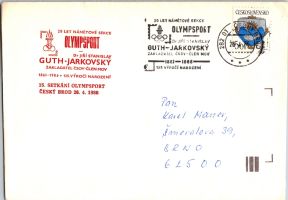 25 LET NÁMĚTOVÉ SEKCE
OLYMPSPORT
Dr JIŘÍ STANISLAV
GUTH-JARKOVSKÝ
ZAKLADATEL ČSOV-ČLEN MOV
1861-1986 125.VÝROČÍ NAROZENÍ
15. SETKÁNÍ OLYMPSPORT
ČESKÝ BROD 26. 4. 1986
25 LET NÁMĚTOVÉ SEKCE
OLYMPSPORT
Dr JIŘÍ STANISLAV
GUTH-JARKOVSKÝ
ZAKLADATEL ČSOV-ČLEN MOV
1861-1986
125.VÝROČÍ NAROZENÍ
282 01
ČESKOSLOVENSKO
Pan
Karel
Šmeralova 39,
BRNO
61500